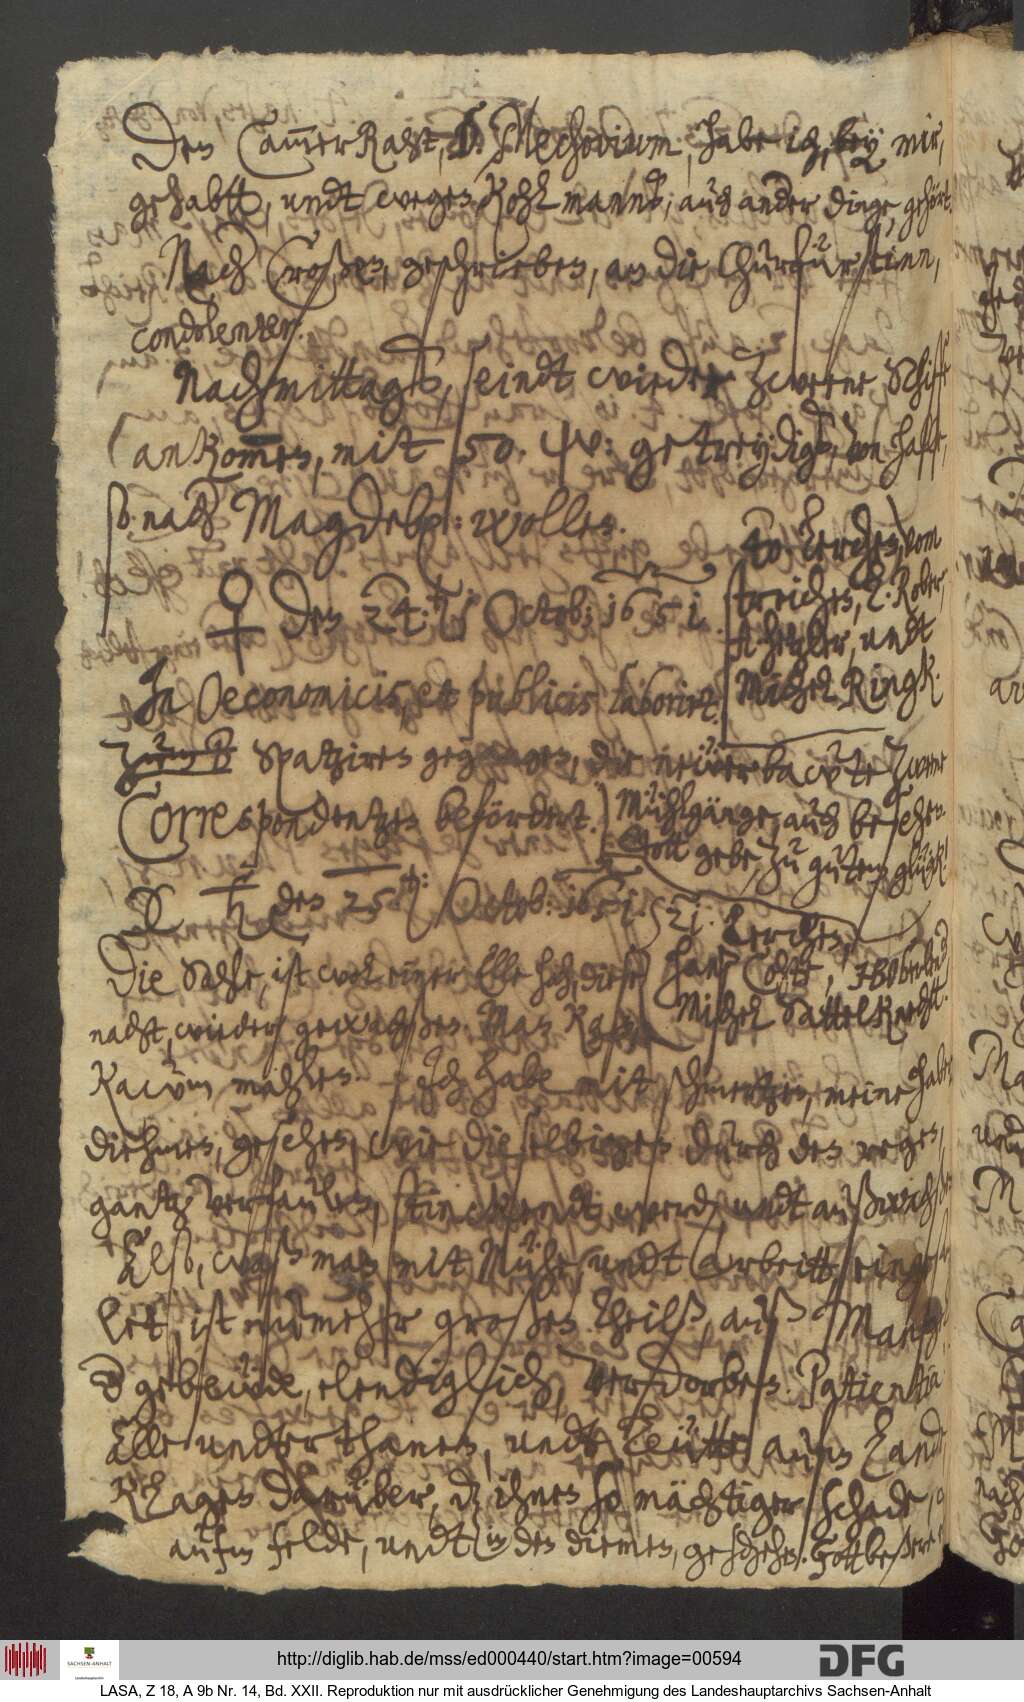 Den Cammer Raht, D. Mechovium, habe ich, bey mir,
gehabtt, undt wegen Kohlmanns, auch ander dinge, gehört.
Nach Croßen, geschrieben, an die Churfürstinn,
condolenter.
Nachmittagß, seindt wieder zweene Schiffe
ankommen, mit 50. w: getreydigß, von
so nach Magdeb: wollen.
♀ den 24. ten Octob: 1651.
21 Lerchen, vom
streichen, L. Rober,
undt
Michel Ringk.
In Oeconomicis, et publicis laborirt.
Spatziren gegangen, die neẅerbawte Zweene
Correspondentzen befördert.
Mühlgänge, auch besehen.
Gott gebe, zu gutem glück!
♄ den 25. ten Octob: 1651.
21. Lerchen,
Die Sahle, ist wol einer Elle hoch, diese
Hanß
Michel Sattelknecht.
nacht, wieder gewachßen. Man kan
kaum mahlen. Ich habe mit schmertzen, meine haber
diehmen, gesehen, wie dieselbigen durch den regen,
gantz verfaulen, stinckendt werden undt außwachßen
Alß, waß man mit Mühe, undt Arbeitt, eingesam
let, ist nunmehr großen theilß, auß Mangel
d gebeüde, elendiglich, verdorben. Patientia!
Alle underthanen, undt Leütte, aufm Lande
klagen darüber, daß ihnen so mächtiger schade,
aufm felde, undt in den diemen, geschehen. Gott beßere
http://diglib.hab.de/mss/ed000440/start.htm?image=00594
DFG
SACHSEN-ANHALT
LASA, Z 18, A 9b Nr. 14, Bd. XXII. Reproduktion nur mit ausdrücklicher Genehmigung des Landeshauptarchivs Sachsen-Anhalt